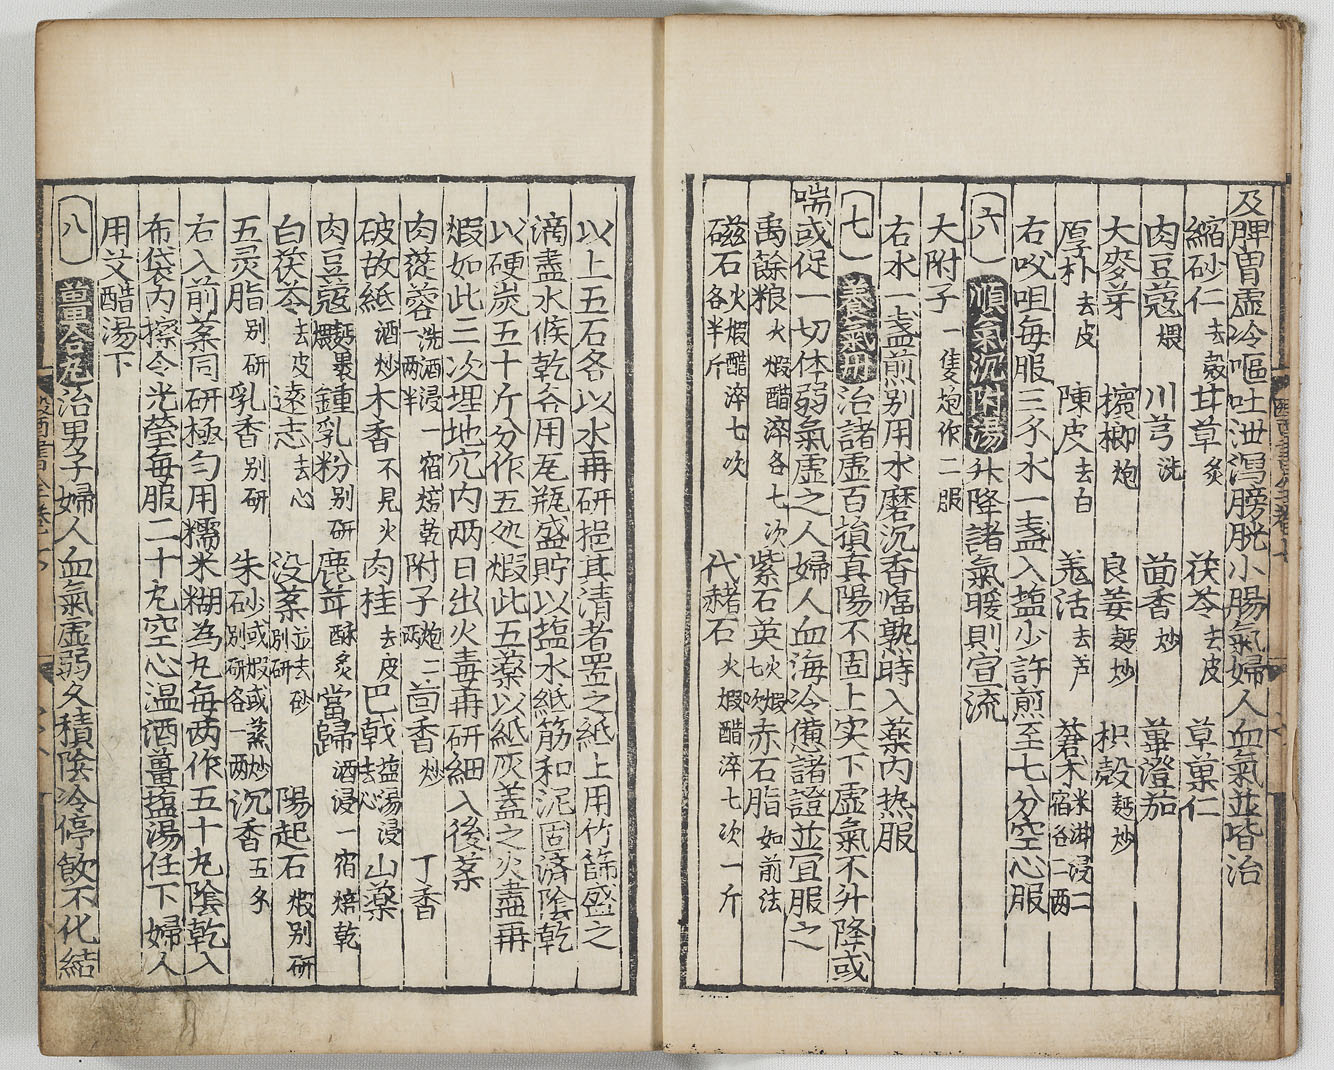 及脾胃虛冷嘔吐泄瀉膀胱小腸氣婦人血氣並皆治
縮砂仁去殼 甘草炙 茯苓去皮 草菓仁
肉豆蔻煨 川芎洗 茴香炒 蓽澄茄
大麥芽 檳榔炮 良姜麪炒 枳殼麪炒
厚朴去皮 陳皮去白 羗活去芦 蒼朮米泔浸二宿各二两
右㕮咀每服三錢水一盞入塩少許煎至七分空心服
六 順氣沉附湯 升降諸氣暖則宣流
大附子一隻炮作二服
右水一盞煎别用水磨沉香臨熟時入藥内热服
七 養氣丹 治諸虛百損真陽不固上实下虛氣不升降或
喘或促一切体弱氣虛之人婦人血海冷憊諸證並宜服之
禹餘粮火煆醋淬各七次 紫石英火煆七次 赤石脂如前法
磁石火煆醋淬七次各半斤 代赭石火煆醋淬七次一斤
以上五石各以水再研挹其清者置之紙上用竹篩盛之
滴盡水候乾各用瓦瓶盛貯以塩水紙筋和泥固済陰乾
以硬炭五十斤分作五処煆此五藥以紙灰蓋之火盡再
煆如此三次埋地穴内两日出火毒再研細入後薬
肉蓯蓉洗酒浸一宿焙乾一两半 附子炮二两 茴香炒 丁香
破故紙酒炒 木香不見火 肉桂去皮 巴戟塩湯浸去心 山藥
肉豆蔻麪裹煨 鍾乳粉别研 鹿茸酥炙 當歸酒浸一宿焙乾
白茯苓去皮 逺志去心 没薬並去砂别研 陽起石煆别研
五灵脂别研 乳香别研 朱砂或煆或蒸炒别研各一两 沉香五錢
右入前薬同研極勻用糯米糊為丸每两作五十丸陰乾入
布袋内擦令光瑩每服二十丸空心温酒薑塩湯任下婦人
用艾醋湯下
八 薑合丸 治男子婦人血氣虛弱久積陰冷停飲不化結